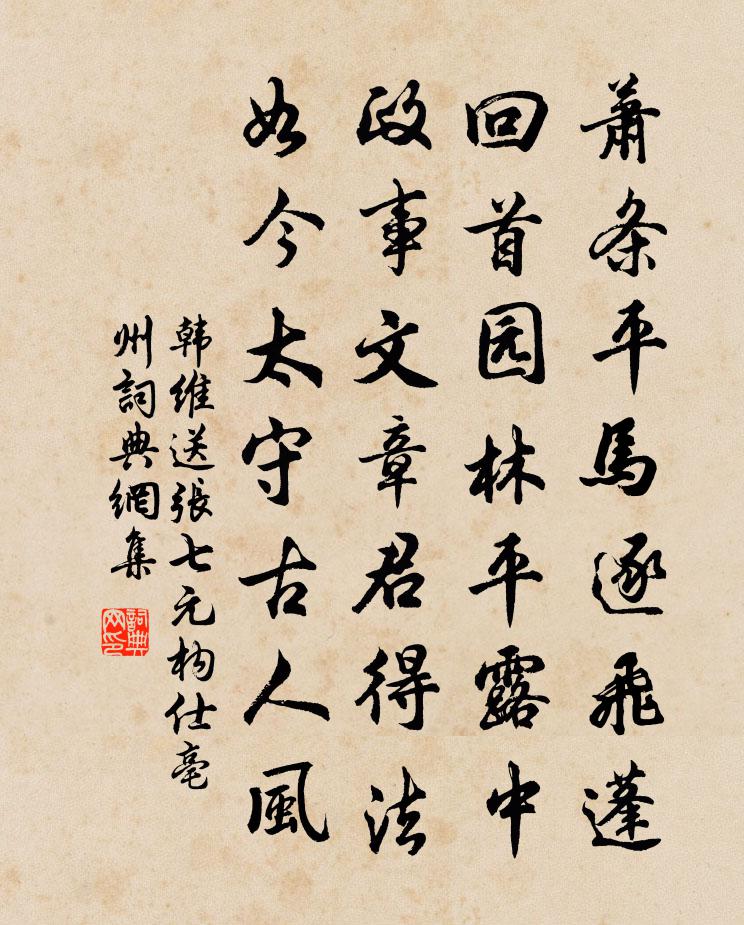 萧条平馬逐飛蓬
回首园林平露中
政事文章君得法
如今太守古人風
韩维送張七元构仕亳
州詞典網集
詞典网印